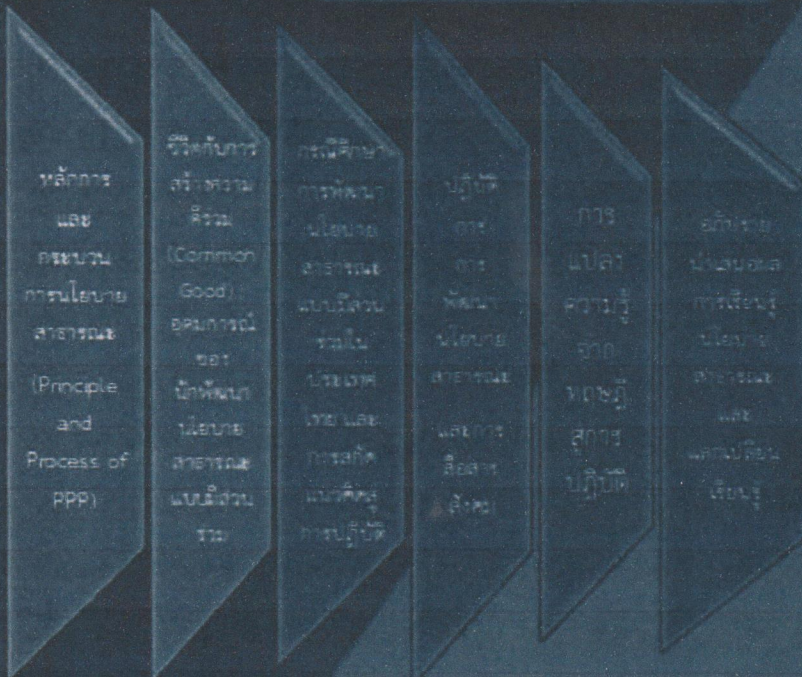 หลักการ
และ
กระบวน
การนโยบาย
สาธารณะ
(Principle
and
Process of
PPP)
ชีวิตกับการ
สร้างความ
ดีร่วม
(Common
Good) :
อุดมการณ์
ของ
นักพัฒนา
นโยบาย
สาธารณะ
แบบมีส่วน
ร่วม
กรณีศึกษา
การพัฒนา
นโยบาย
สาธารณะ
แบบมีส่วน
ร่วมใน
ประเทศ
ไทย และ
การสกัด
แนวคิดสู่
การปฏิบัติ
ปฏิบัติ
การ
การ
พัฒนา
นโยบาย
สาธารณะ
และการ
สื่อสาร
สังคม
การ
แปลง
ความรู้
จาก
ทฤษฎี
สู่การ
ปฏิบัติ
อภิปราย
นำเสนอผล
การเรียนรู้
นโยบาย
สาธารณะ
และ
แลกเปลี่ยน
เรียนรู้